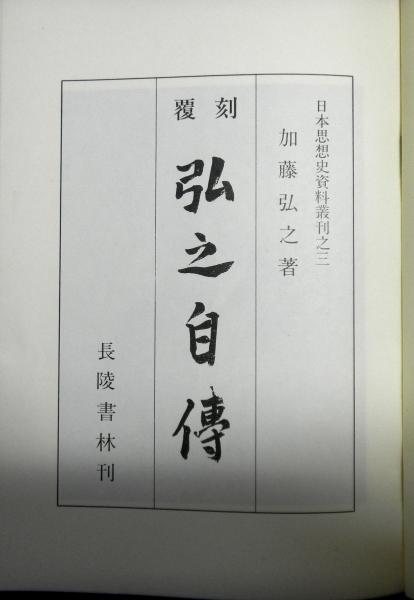 日本思想史資料叢刊之三
加藤弘之著
覆刻
弘之自傳
長陵書林刊